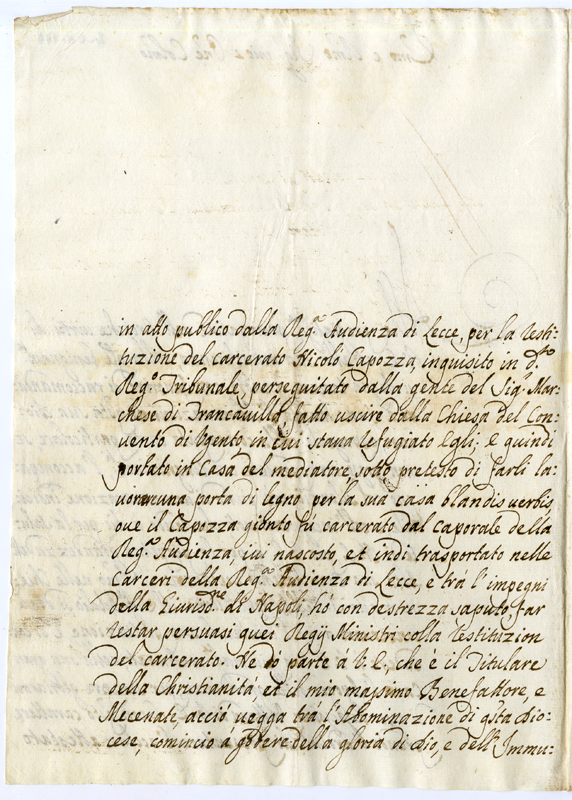 in atto publico dalla Reg.ª Audienza di Lecce, per la resti-
tuzione del carcerato Nicolò Capozza, inquisito in d.to
Reg.º Tribunale perseguitato dalla gente del Sig.r Mar-
chese di Trancavilla, fatto uscire dalla Chiesa del Con-
vento di Ugento in cui staua refugiato Egli: e quindi
portato in Casa del mediatore, sotto pretesto di farli la-
uorar una porta di legno per la sua casa blandis verbis,
oue il Capozza gionto fù carcerato dal Caporale della
Reg.ª Audienza, iui nascosto, et indi trasportato nelle
Carceri della Reg.ª Audienza di Lecce, e trà l'impegni
della Giurisd.ne di Napoli, hò con destrezza saputo far
restar persuasi quei Regij Ministri colla restituzion
del carcerato. Ne dò parte à V. E., che è il Titulare
della Christianità et il mio massimo Benefattore, e
Mecenate, acciò uegga trà l'Abominazione di q.sta Dio-
cese, comincio à godere della gloria di Dio, e dell'Immu-